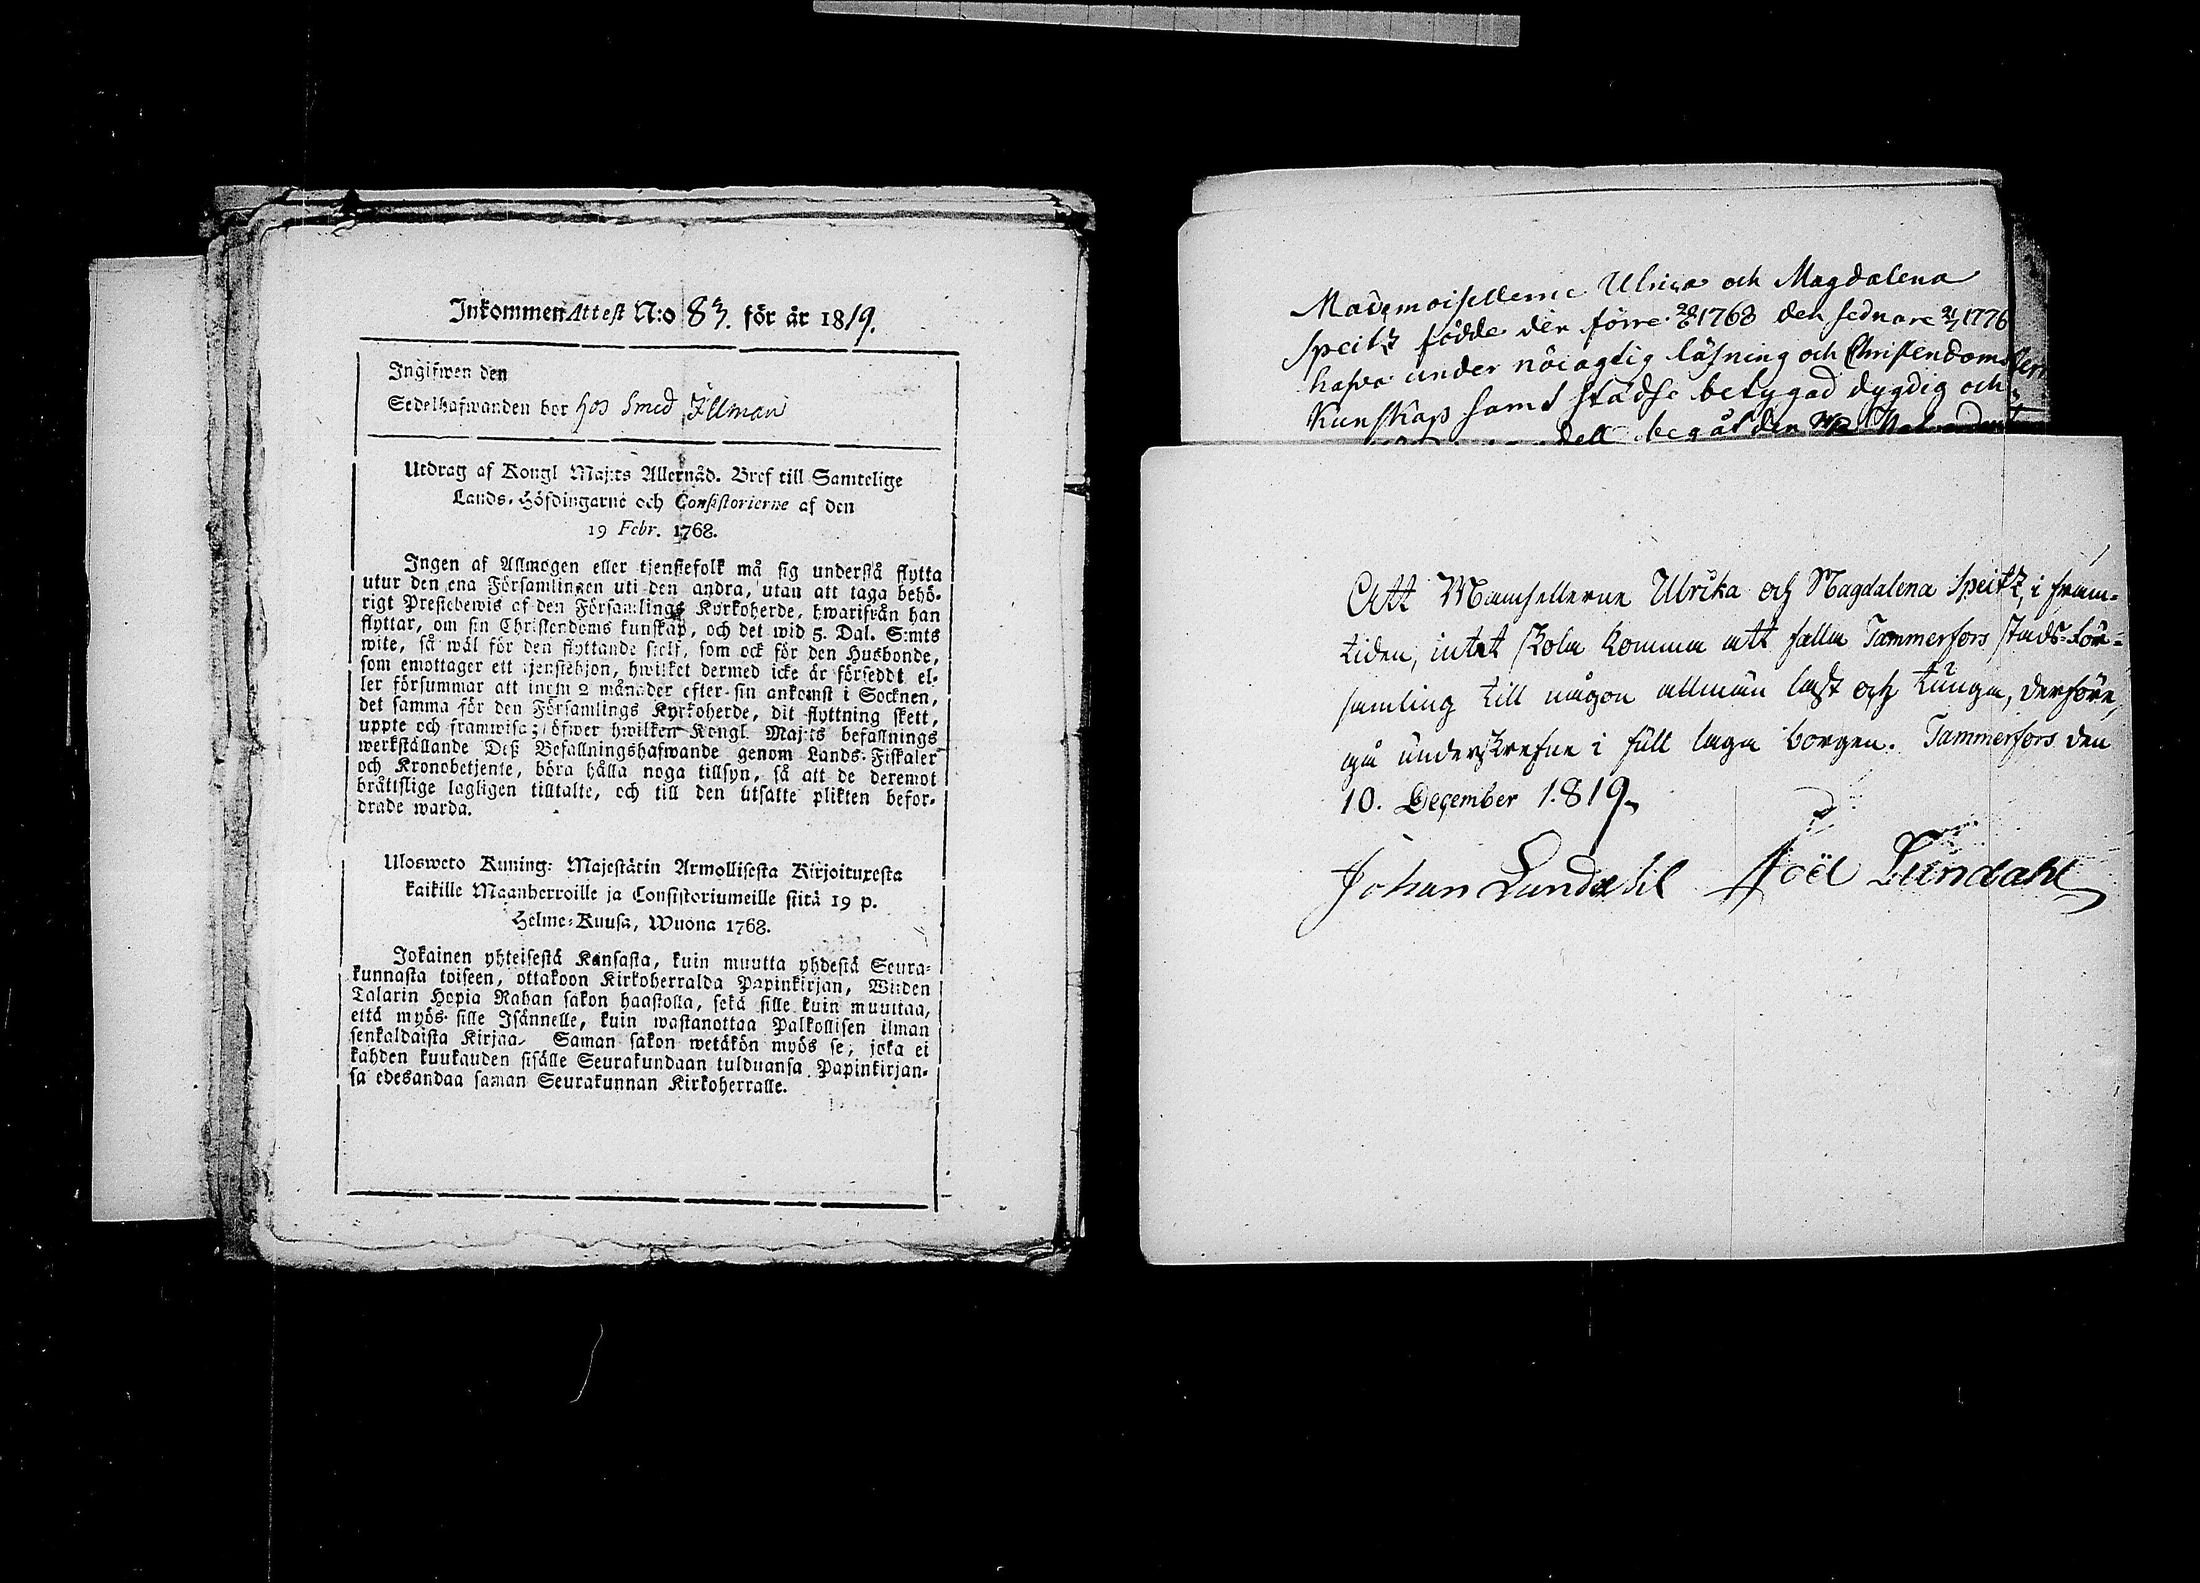 Inkommen Attest N:o 83. för år 1819.
Ingifwen den
Sedelhafwanden bor hos Smed Illman
Utdrag af Kongl Maj:ts Allernåd. Bref till Samtelige
Lands-Höfdingarne och Consistorierne af den
19 Febr. 1768.
Ingen af Allmogen eller tjenstefolk må sig understå flytta
utur den ena Församlingen uti den andra, utan att taga behö-
rigt Prestebewis af den Församlings Kyrkoherde, hwarifrån han
flyttar, om sin Christendoms kunskap, och det wid 5. Dal. S:mts
wite, så wäl för den flyttande sielf, som ock för den Husbonde,
som emottager ett tjenstehjon, hwilket dermed icke är förseddt el-
ler försummar att inom 2 månader efter sin ankomst i Socknen,
det samma för den Församlings Kyrkoherde, dit flyttning skett,
uppte och framwisa; öfwer hwilken Kongl. Maj:ts befallnings
werkställande Deß Befallningshafwande genom Lands-Fiskaler
och Kronobetjente, böra hålla noga tillsyn, så att de deremot
bråttslige lagligen tilltalte, och till den utsatte plikten befor-
drade warda.
Ulosweto Kuning: Majestätin Armollisesta Kirjoituxesta
kaikille Maanherroille ja Consistoriumeille siitä 19 p.
Helme-Kuusa, Wuona 1768.
Jokainen yhteisestä Kansasta, kuin muutta yhdestä Seura-
kunnasta toiseen, ottakoon Kirkoherralda Papinkirjan, Wiiden
Talarin Hopia Rahan sakon haastolla, sekä sille kuin muuttaa,
että myös sille Isännelle, kuin wastanottaa Palkollisen ilman
senkaldaista Kirjaa. Saman sakon wetäkön myös se, joka ei
kahden kuukauden sisälle Seurakundaan tulduansa Papinkirjan-
sa edesandaa saman Seurakunnan Kirkoherralle.
Mademoisellerne Ulrica och Magdalena
Speitz födde den förre 1768 den sednare 21/7 1776
hafva under nöiagtig läsning och Christendoms
Kunskap samt städse betygad dygdig och
begått den
Att Mamsellerne Ulrika och Magdalena Speitz, i fram-
tiden, intet skola komma att falla Tammerfors stads-för-
samling till någon allmän last och tunga, derföre,
gå underskrefne i full laga borgen. Tammerfors den
10. December 1819.
Johan Lundahl Joël Lundahl